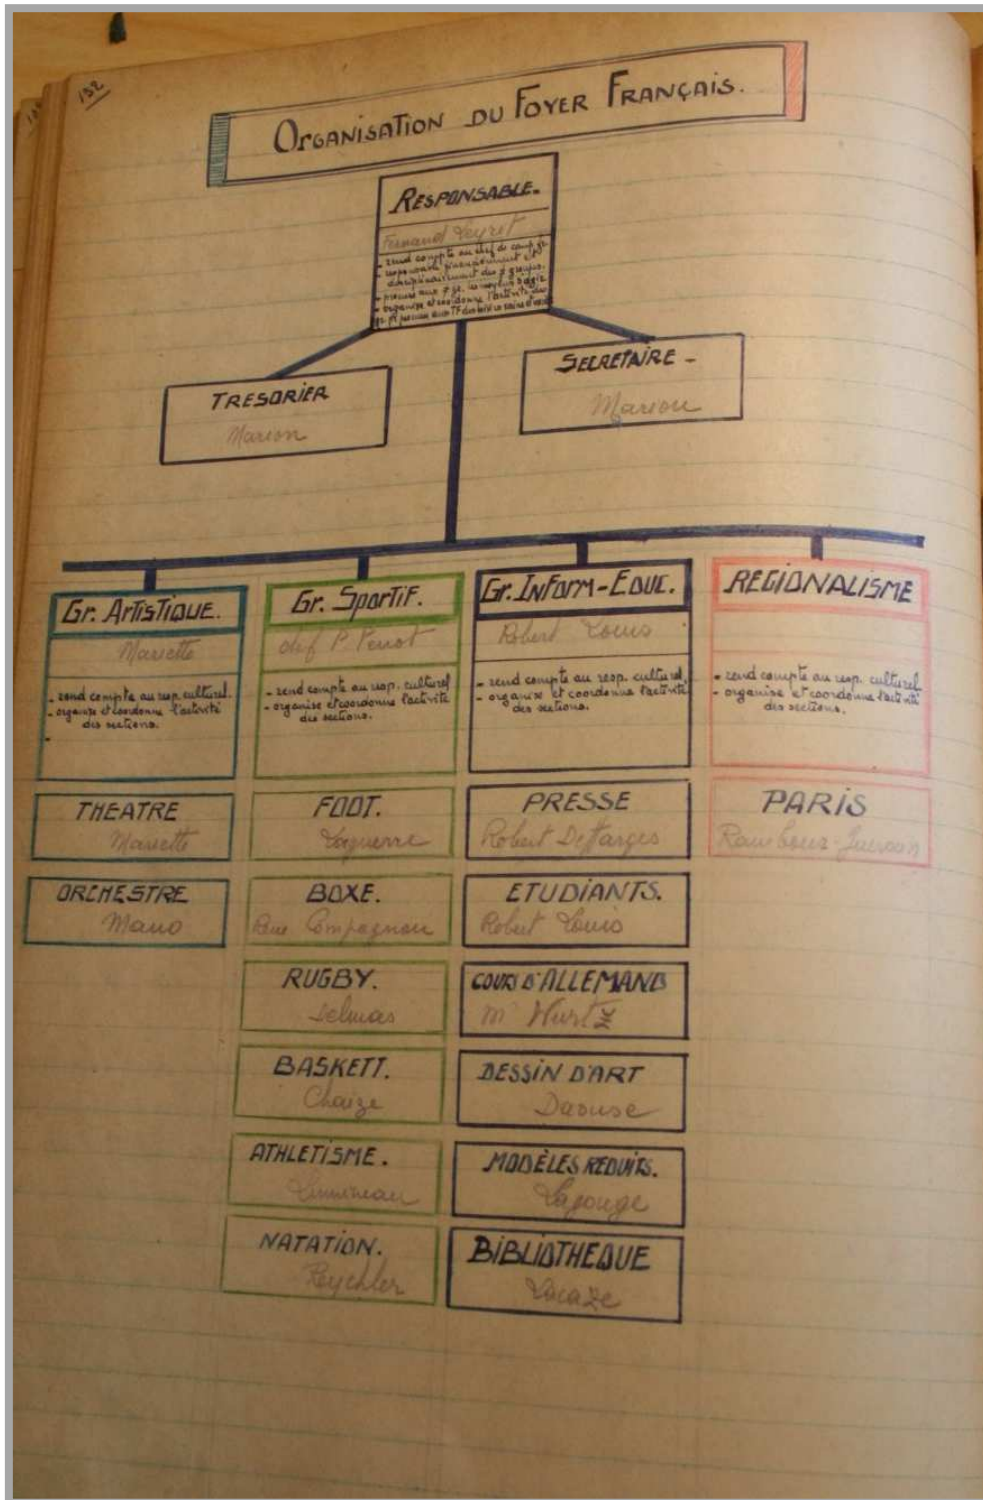 132
ORGANISATION DU FOYER FRANÇAIS.
RESPONSABLE.
Fernand Peyret
- rend compte au chef de camp, gr.
- responsable financièrement et
disciplinairement des groupes.
- procure aux gr. les moyens d'agir
- organise et coordonne l'activité des
TRESORIER
Marion
SECRETAIRE -
Marion
Gr. ArtisTIQUE.
Mariette
- rend compte au resp. culturel.
- organise et coordonne l'activité
des sections.
-
THEATRE
Mariette
ORCHESTRE
Mano
Gr. Sportif.
chef P. Perrot
- rend compte au resp. culturel
- organise et coordonne l'activité
des sections.
FOOT.
Laguerre
BOXE.
Compagnon
RUGBY.
Delmas
BASKETT.
Chaize
ATHLETISME.
Lumineau
NATATION.
Reychler
Gr. INFORM-EDUC.
Robert Louis
- rend compte au resp. culturel,
- organise et coordonne l'activité
des sections.
PRESSE
Robert Deffarges
ETUDIANTS.
Robert Louis
COURS D'ALLEMAND
Mr Wurtz
DESSIN D'ART
Daouse
MODÈLES REDUITS.
Lajouge
BIBLIOTHEQUE
Lacaze
REGIONALISME
- rend compte au resp. culturel
- organise et coordonne l'activité
des sections.
PARIS